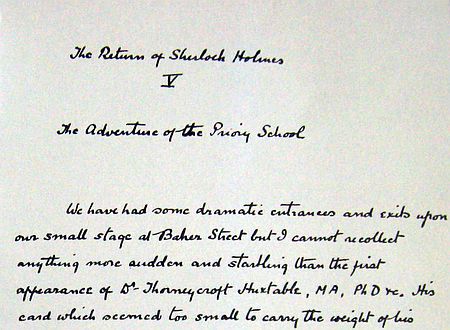 The Return of Sherlock Holmes
V
The Adventure of the Priory School
We have had some dramatic entrances and exits upon
our small stage at Baker Street but I cannot recollect
anything more sudden and startling than the first
appearance of Dr Thorneycroft Huxtable, MA, PhD &c. His
card which seemed too small to carry the weight of his